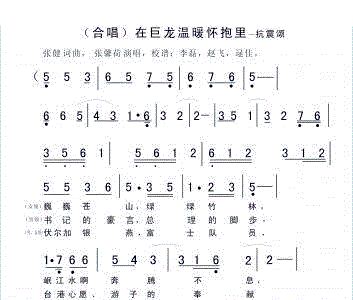 （合唱）在巨龙温暖怀抱里—抗震颂
张健词曲，张馨荷演唱，校谱：李磊，赵飞，逯佳，
（5 5 3 6 5 7 5 6 7 5 5——
1 2 0 6 5 4 3 1·6 3 2 2——
3 5 6 1 5 6 1 2 2 6 1 2
5 5 3 6 5·3 5 1·6 5 1——
巍巍苍山，绿绿竹林，
书记的豪言，总理的脚步，
伏尔加银燕，富士队员，
1·7 6 6 5 3 2 1 2 3 2——
岷江水啊奔腾不息，
台港心愿、游子的奉献